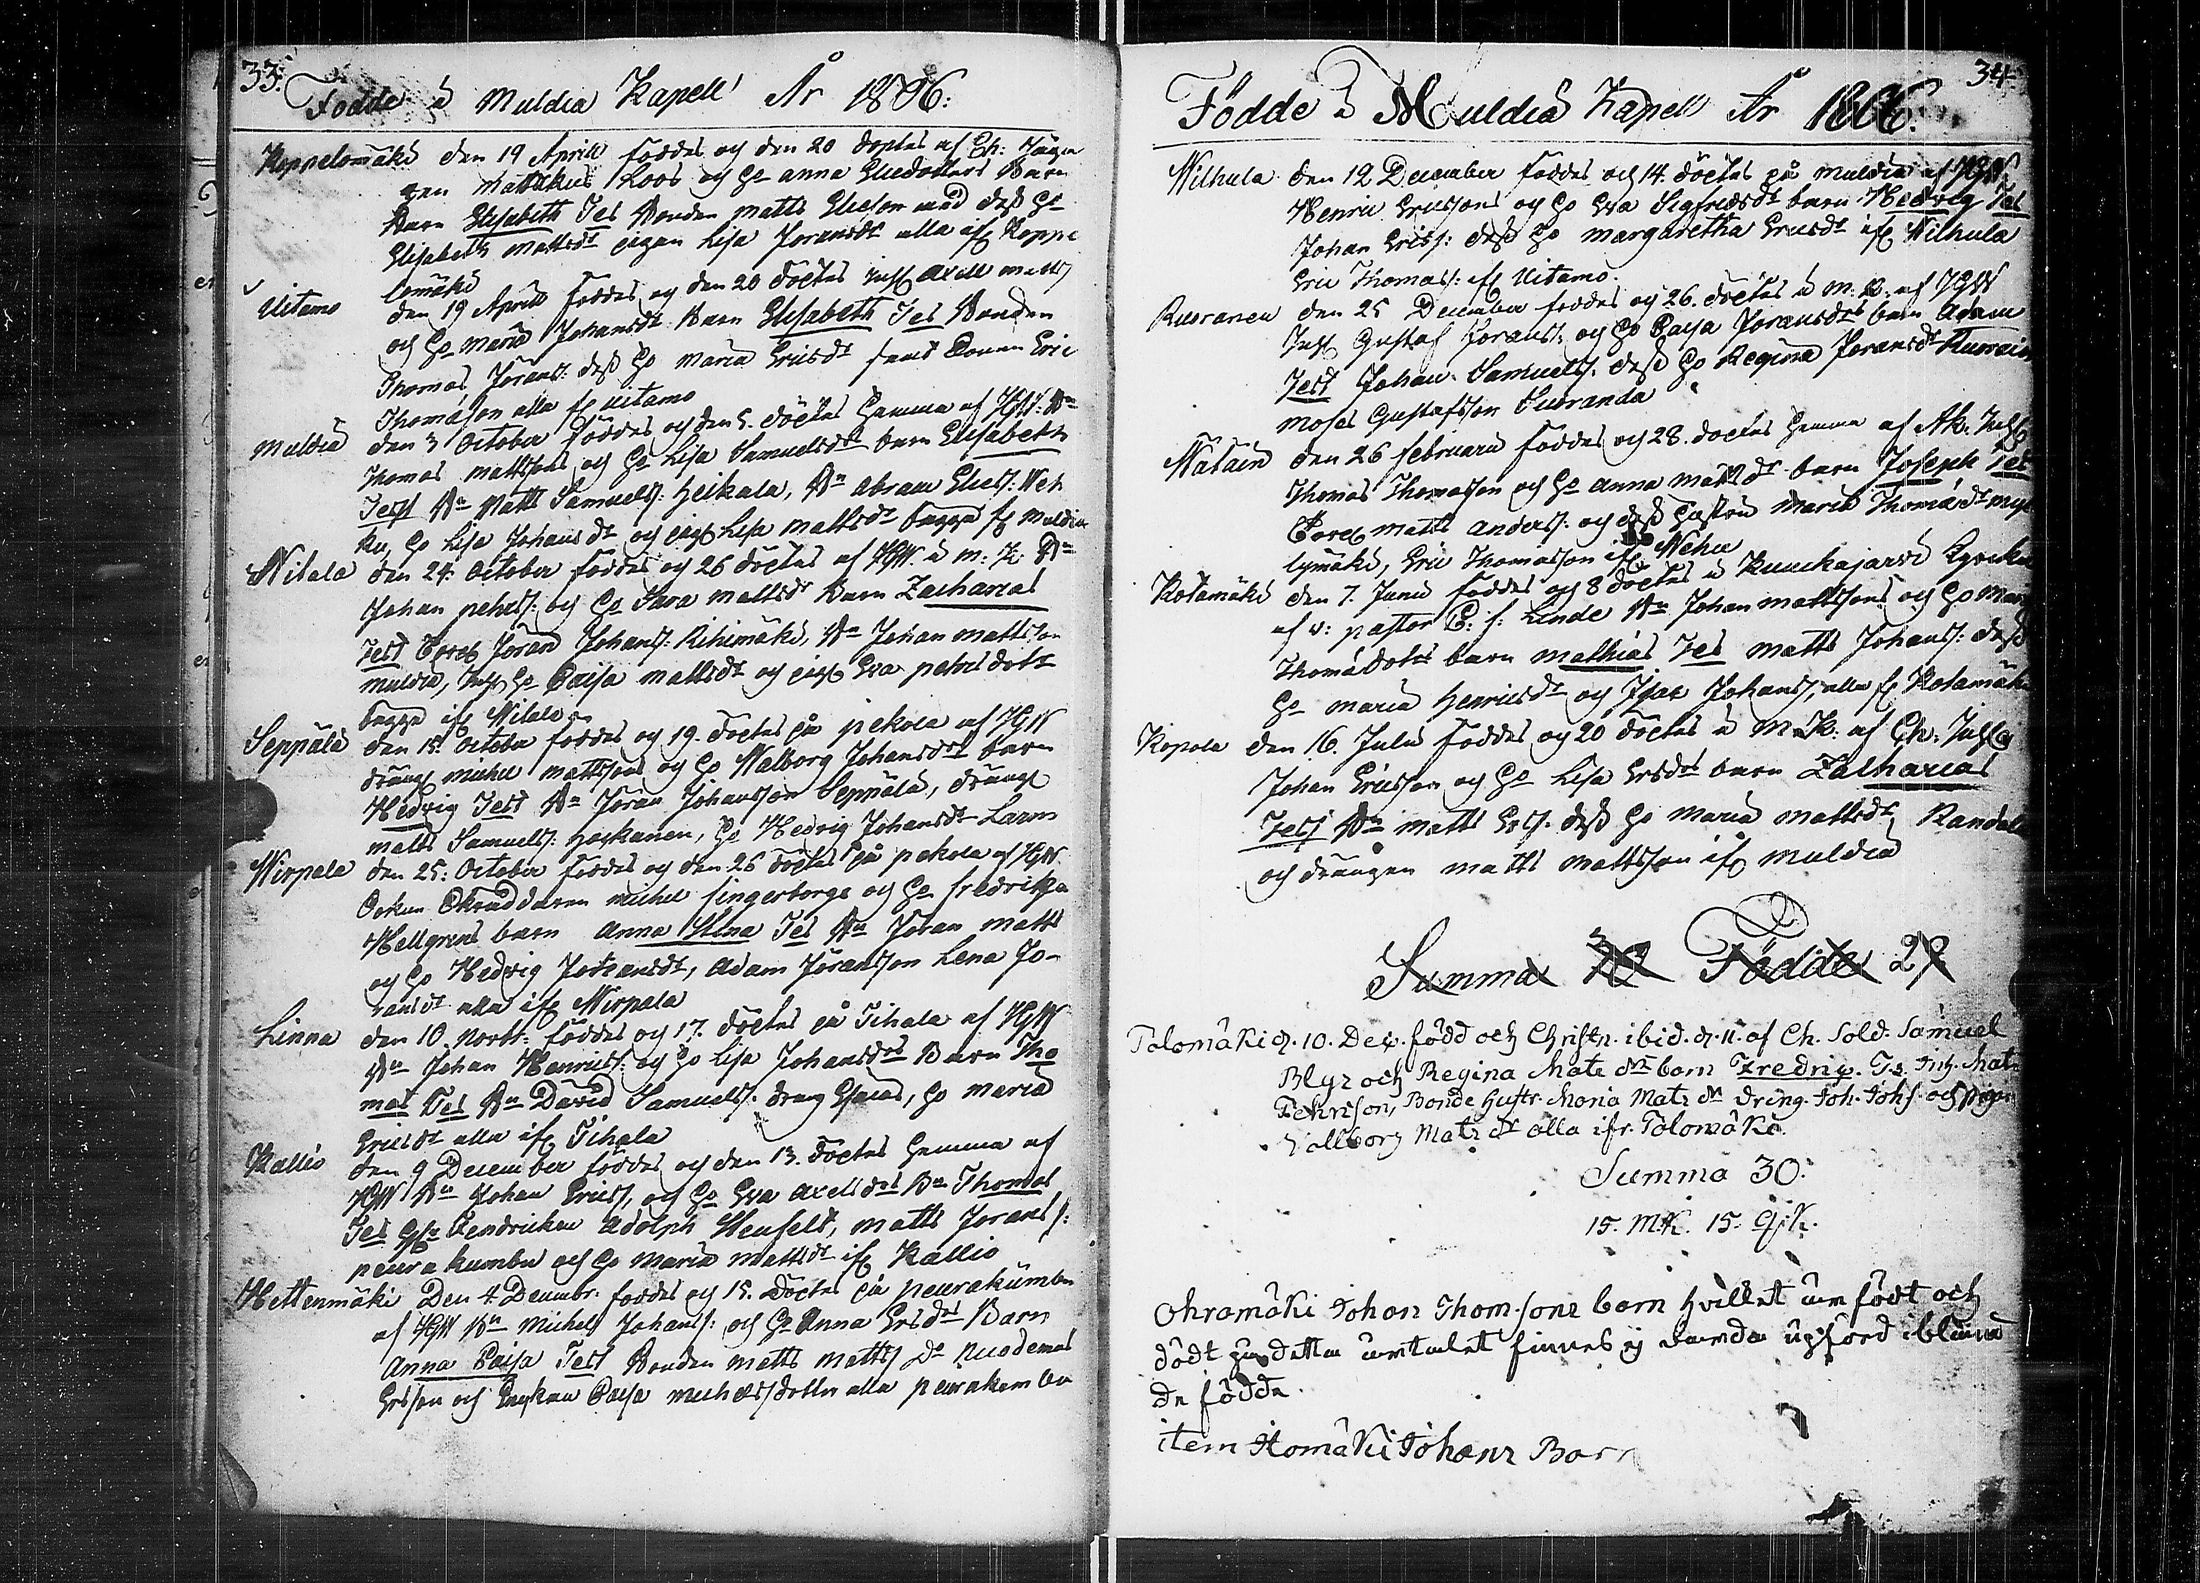 33:
Födde i Muldia Kapell År 1806:
Koppelomäki den 19 Aprill föddes og den 20 döptes af Ch: Jägar
gen Matthias Loos og ho anna Elisdotters Barn
Barn Elisabeth Tes Bonden matts Elieson med dess ho
Elisabeth mattsdr pigan Lisa Joransdr alla if Koppe
lomäki
Uitamo den 19 Aprill foddes og den 20 döctes Inh Axell matts
og Ho maria Johansdr Barn Elisabeth Tes Bonden
Thomas Jörans: dess Ho maria Ericsdr samt Eric
Thomason alla if uitamo
Muldia den 3 October föddes og den 5. döctes hemma af HGW: Bn
Thomas mattsons og ho Lisa Samuelsdr barn Elisabeth
Test Bn Matts Samuels: Heikala, Bn abram Elies: Weh
ku, ho Lisa Johansdr og pig Lisa mattsdr bagge if Muldia
Nitala den 24. October foddes og 26 döctes af HGW. i m: K: Bn
Johan petters: og ho Sara mattsdr Barn Zacharias
Test Joran Johans: Rihimäki, Bn Johan mattson
muldia, Inh ho Caisa mattsdr og pig Eva petersdotr
bagge if Nitala
Seppälä den 15. October foddes og 19. döctes på pekola af HGW
dräng michel mattsons og ho Walborg Johansdr barn
Hedvig Test Bn Joran Johansson Seppälä, dräng
matts Samuels: Hoskanen, ho Hedvig Johansdr Larm
Wirpala den 25: October foddes og den 26 döctes på pekola af HGW
Sokne Skräddaren michel fingerborgs og ho fredrika
Hellgrens barn Anna Stina Tes Bn Joran matts
og ho Hedvig Johansdr, Adam Joranson Lena Jo-
ransdr alla if Wirpala
Linna den 10 Novbr: föddes og 17. döctes på Tihala af HGW
Bn Johan Henrics: og ho Lisa Johansdrs Barn Tho
mas Tes Bn David Samuels: dräng Esaias, ho maria
Ericsdr alla if Tihala
Kallio den 9 December foddes og den 13. döctes hemma af
HGW Bn Johan Erics, og ho Eva Axellsdrs Bn Thomas
Tes Fendricken Adolph Stenfelt, matts Jorans:
peurakumbu og ho maria mattsdr if Kallio
Hettenmäki Den 4 Decembr: foddes og 15. Döctes på peurakumbu
af HGW Bn Michel Johans: og Ho Anna Ersdrs Barn
Anna Caisa Test Bonden matts matts Do Nicodemus
Erson och Caisa michelsdotter alla peurakumbu
34
Födde i Muldia Kapell År 1806.
Wilhula den 12 December foddes och 14. döctes på Muldia af HGW
Henric Ericssons og ho Eva Sigfridsdr barn Hedvig Tes
Johan Erics: dess ho margaretha Ericsdr if Wilhula
Eric Thomas: if Uitamo.
Ruoranen den 25 December foddes og 26. döctes i m: K: af HGW
Inh Gustaf Jorans: og ho Caisa Joransdrs barn Adam
Test Johan Samuels: dess ho Regina Joransdr
Moses Gustafsson Suoranda
Natain den 26 februarii foddes og 28. doctes hemma af Ak. Inh
Thomas Thomasson og ho anna mattsdr barn Joseph Tes
Matts Anders: og dess hustru Maria Thomasdr my
lymäki, Eric Thomasson if Wehu
Kotamäki den 7. Junii foddes og 8 döctes i Kuuckajärvi Kyrcka
af v: pastor C: f: Linde Bn Johan mattssons og ho Mar
Thomasdotrs barn mathias Tes matts Johans: dess
ho maria Henricsdr og Isac Johans: alla if Kotamäki
Kopola den 16. Julii foddes og 20 döctes i M. K: af Ch. Inh
Johan Ericsson og Ho Lisa Ersdrs barn Zacharias
Test Bn matts Ers: dess ho Maria mattsdr Randal
och drängen matts mattsson if muldia
Summa Födde 29
Tolomäki d. 10. Dec. född och Christn. ibid. d. 11. af Ch. Sold. Samuel
Blyr och Regina Mats dtr barn Fredric. Ts. Inh. Mats
Fekrison, Bonde hustr. Maria Mats dr dräng. Joh. Johs. och pigan
Vallborg Mats dr alla ifr. Tolomäki.
Summa 30:
15. MK. 15. QK.
Ohramäki Johan Thom-sons barn hvilket är födt och
dödt finnes ej upford ibland
de födde.
item Homäki Johans Barn